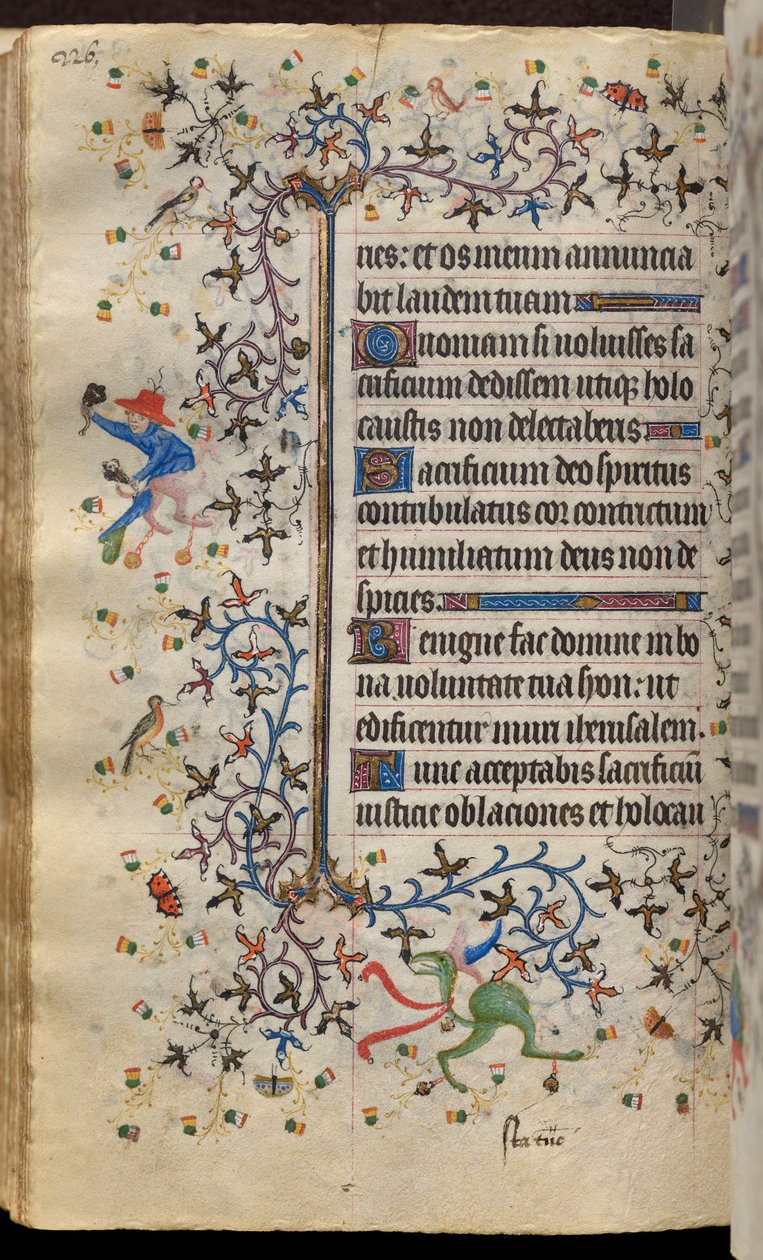 226.
nes: et os meum annuncia
bit laudem tuam
Quoniam si voluisses sa
crificium dedissem utiq; holo
caustis non delectaberis.
Sacrificium deo spiritus
contribulatus cor contritum
et humiliatum deus non de
spicies.
Benigne fac domine in bo
na voluntate tua syon: ut
edificentur muri iherusalem.
Tunc acceptabis sacrificiū
iusticie oblaciones et holocau
sta tūc